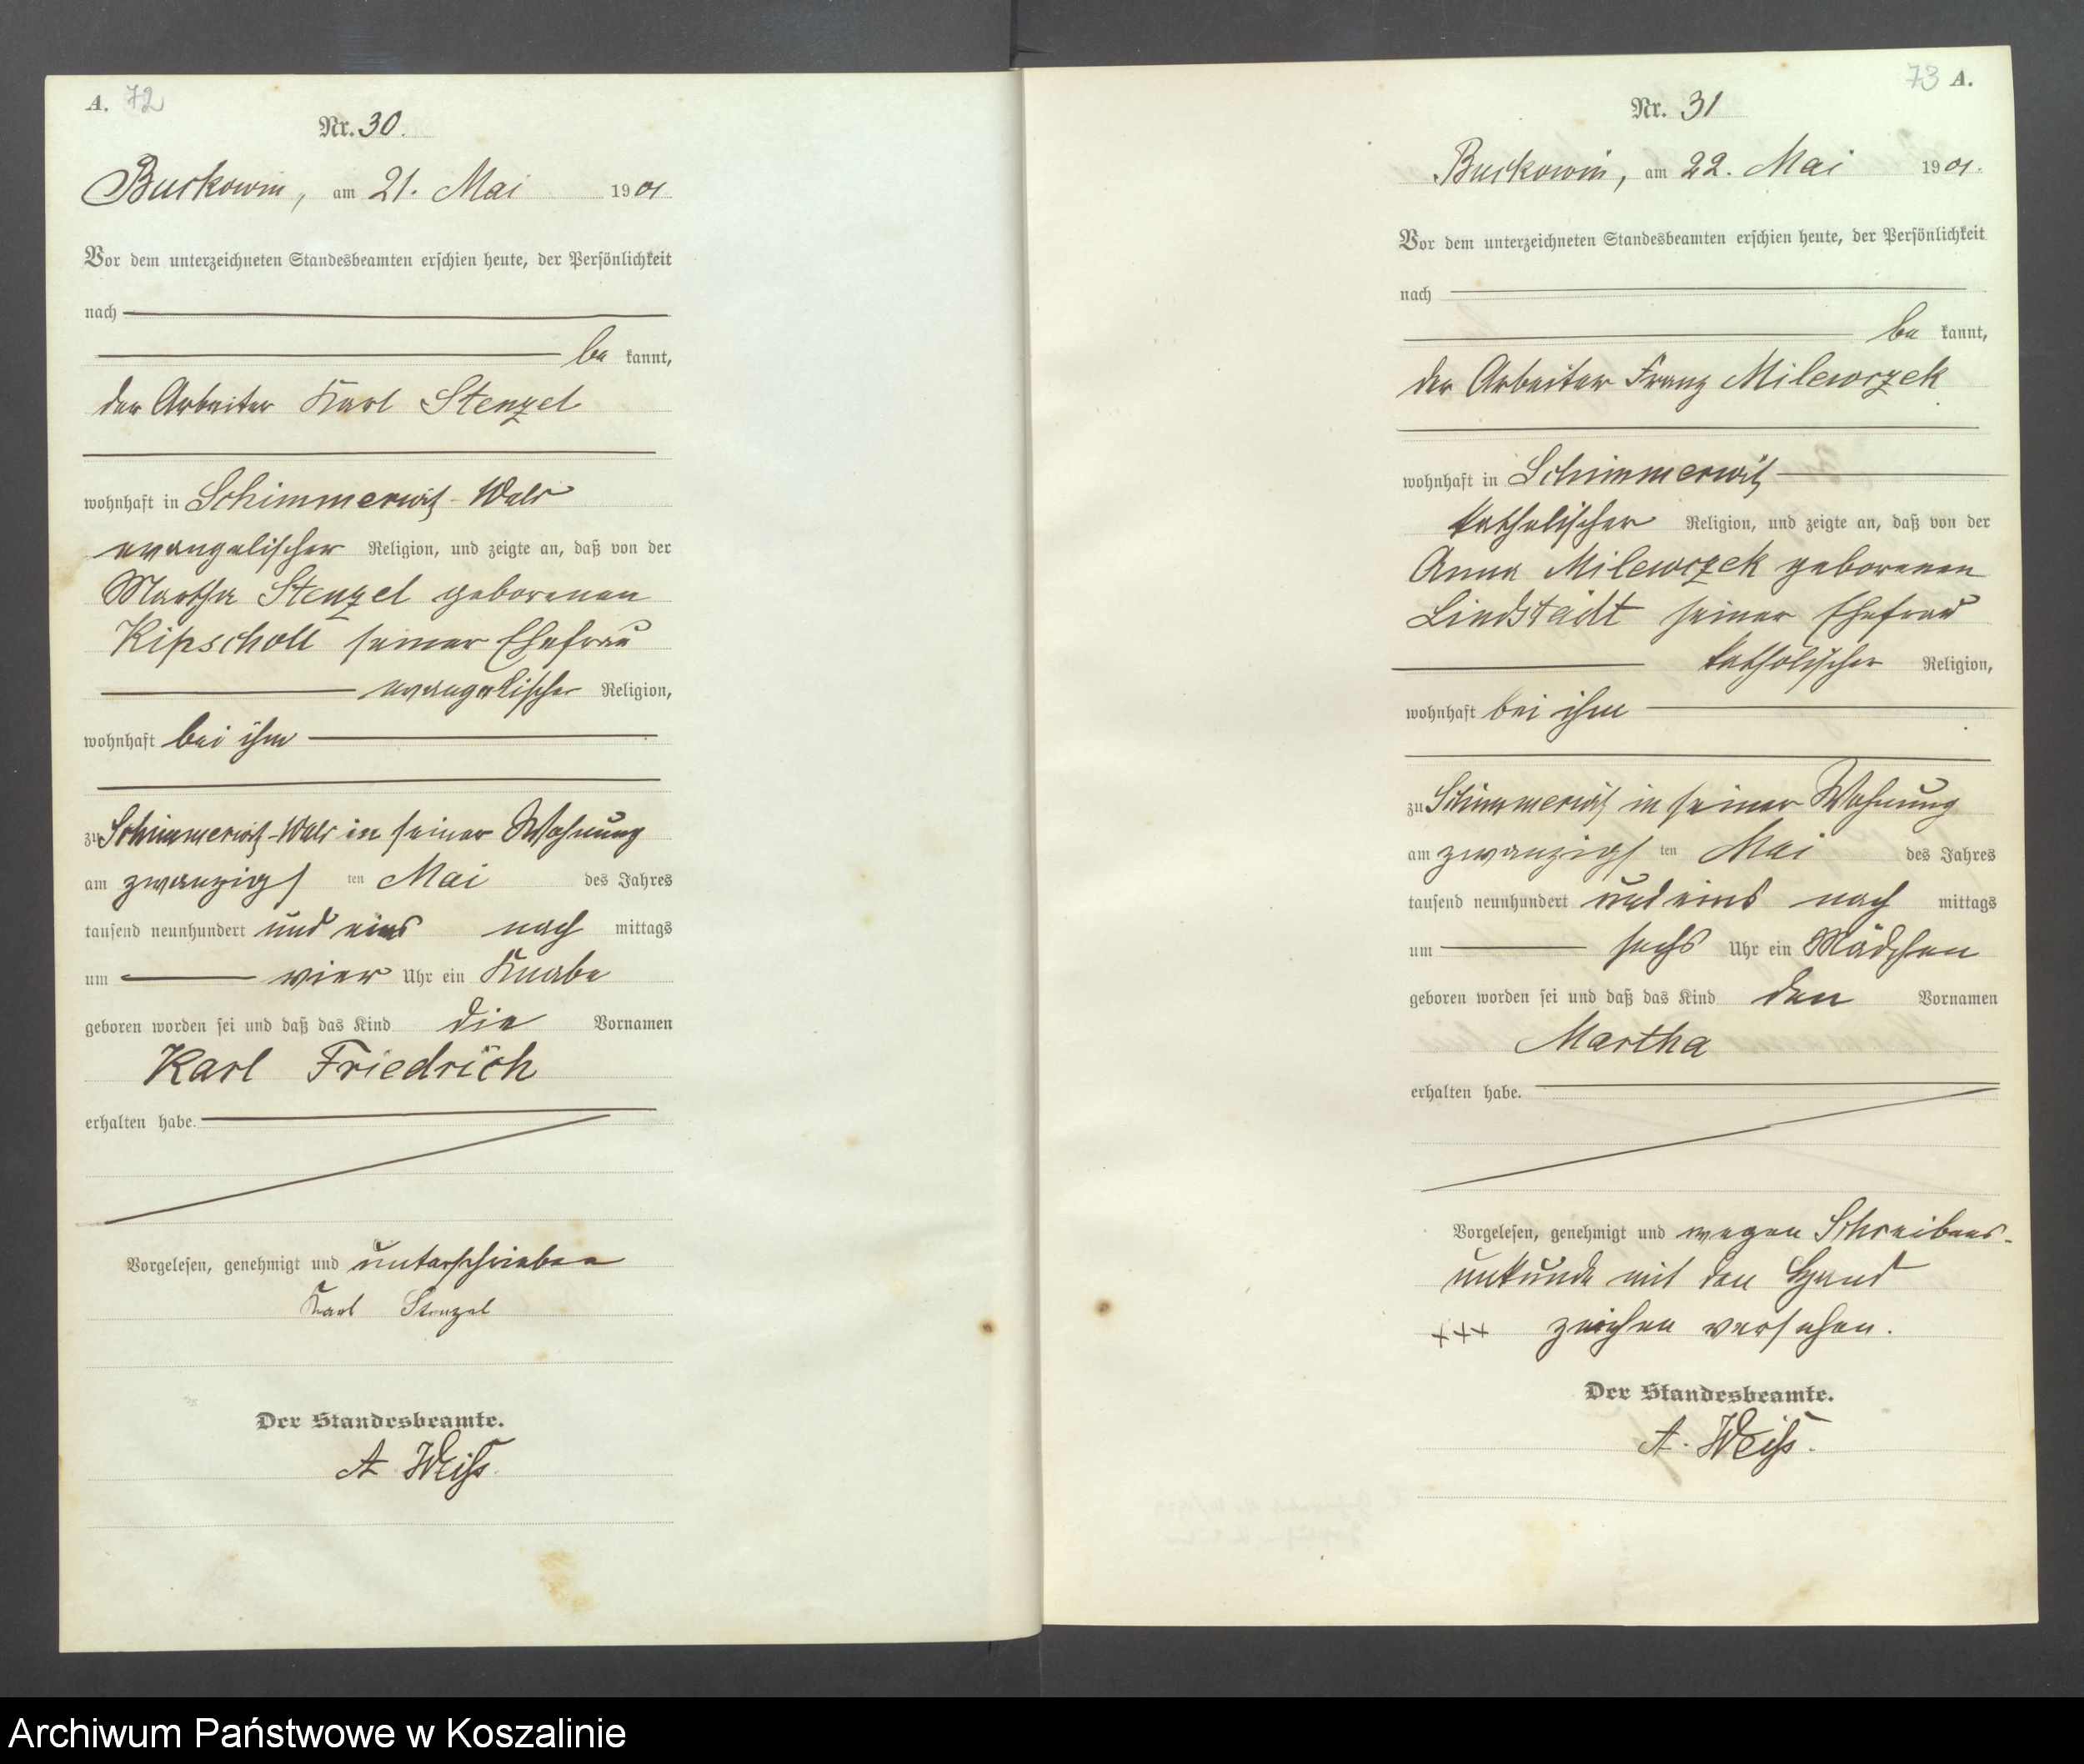 A. 72
Nr. 30.
Buckowin, am 21. Mai 1901
Vor dem unterzeichneten Standesbeamten erschien heute, der Persönlichkeit
nach
be kannt,
der Arbeiter Karl Stenzel
wohnhaft in Schimmerwitz-Wald
evangelischer Religion, und zeigte an, daß von der
Martha Stenzel geborenen
Kipscholl seiner Ehefrau
evangelischer Religion,
wohnhaft bei ihm
zu Schimmerwitz-Wald in seiner Wohnung
am zwanzigs ten Mai des Jahres
tausend neunhundert und eins nach mittags
um vier Uhr ein Knabe
geboren worden sei und daß das Kind die Vornamen
Karl Friedrich
erhalten habe.
Vorgelesen, genehmigt und unterschrieben
Karl Stenzel
Der Standesbeamte.
A. Weiß.
73 A.
Nr. 31
Buckowin, am 22. Mai 1901.
Vor dem unterzeichneten Standesbeamten erschien heute, der Persönlichkeit
nach
be kannt,
der Arbeiter Franz Milewczek
wohnhaft in Schimmerwitz
katholischer Religion, und zeigte an, daß von der
Anna Milewczek geborenen
Lindstädt seiner Ehefrau
katholischer Religion,
wohnhaft bei ihm
zu Schimmerwitz in seiner Wohnung
am zwanzigs ten Mai des Jahres
tausend neunhundert und eins nach mittags
um sechs Uhr ein Mädchen
geboren worden sei und daß das Kind den Vornamen
Martha
erhalten habe.
Vorgelesen, genehmigt und wegen Schreibens-
unkunde mit den Hand
+++ zeichen versehen.
Der Standesbeamte.
A. Weiß.
Archiwum Państwowe w Koszalinie